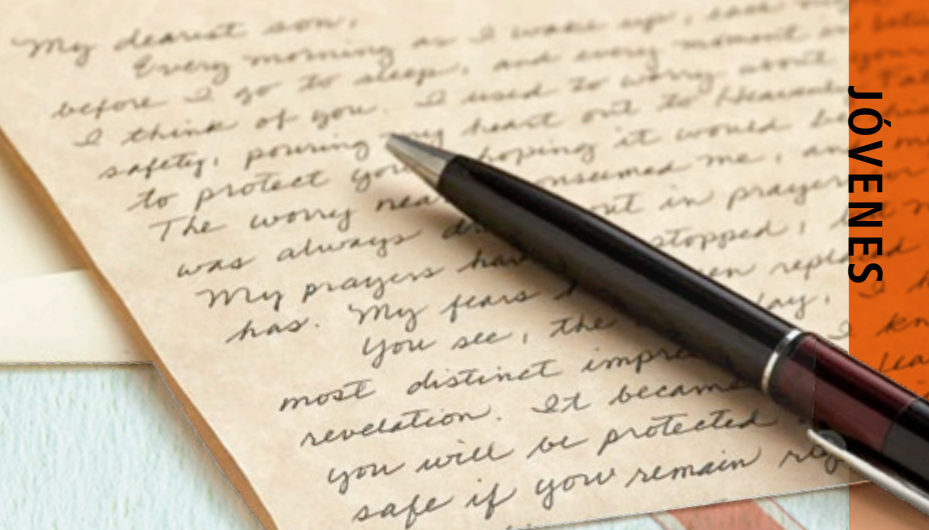 My dearest son,
Every morning as I wake up, each night
before I go to sleep, and every moment in between
I think of you. I used to worry about your
safety, pouring my heart out to Heavenly Fat
to protect you, hoping it would be
The worry nea consumed me, and m
was always out in prayer
My prayers hav stopped,
has. My fears en replaced
You see, the day, I
most distinct impre I kn
revelation. It became
you will be protected
safe if you remain rig
JÓVENES